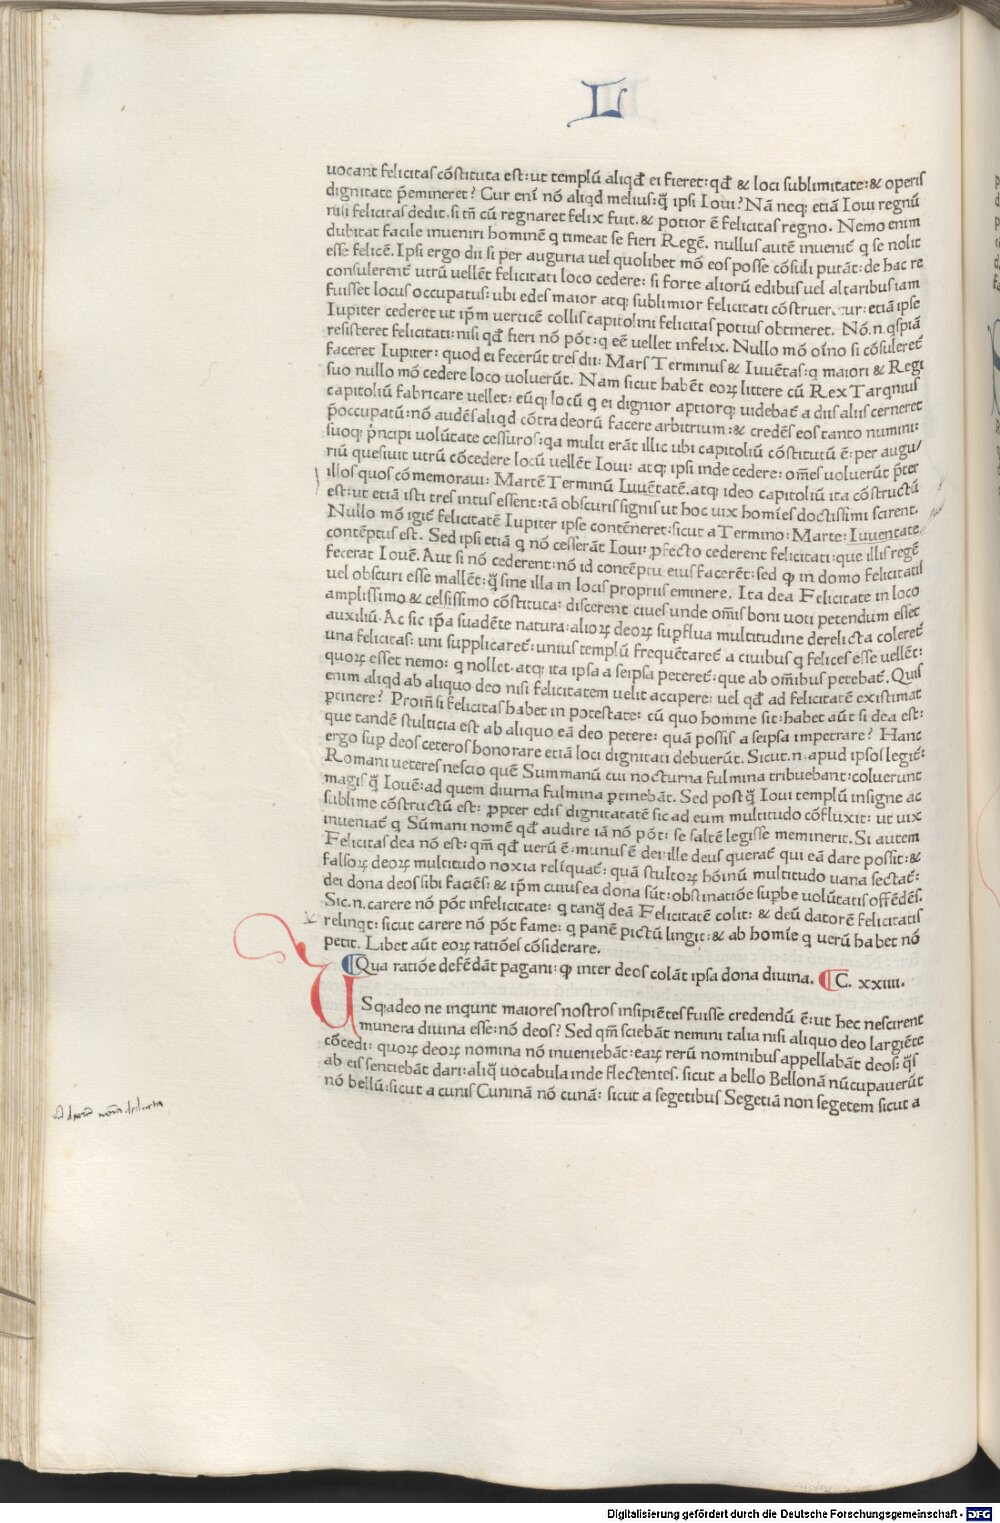 L
uocant felicitas cōstituta est: ut templū aliqđ ei fieret: qđ & loci sublimitate: & operis
dignitate p̄emineret? Cur eni nō aliqd melius: q̄ ipsi Ioui? Nā neq; etiā Ioui regnū
nisi felicitas dedit. si tn̄ cū regnaret felix fuit. & potior ē felicitas regno. Nemo enim
dubitat facile inueniri hominē q timeat se fieri Regē. nullus autē inuenit̄ q se nolit
esse felicē. Ipsi ergo dii si per auguria uel quolibet mō eos posse cōsuli putāt: de hac re
consulerent̄ utrū uellēt felicitati loco cedere: si forte aliorū edibus uel altaribus iam
fuisset locus occupatus: ubi edes maior atq; sublimior felicitati cōstrueret̄: etiā ipse
Iupiter cederet ut ip̄m uerticē collis capitolini felicitas potius obtineret. Nō.n.q̄spiā
resisteret felicitati: nisi qđ fieri nō pōt: q eē uellet infelix. Nullo mō oīno si cōsuleret̄
faceret Iupiter: quod ei fecerūt tres dii: Mars Terminus & Iuuētas: q maiori & Regi
suo nullo mō cedere loco uoluerūt. Nam sicut habēt eoꝝ littere cū Rex Tarqnius
capitoliū fabricare uellet: eūq; locū q ei dignior aptiorq; uidebat̄ a diis aliis cerneret
p̄occupatū: nō audēs aliqd cōtra deorū facere arbitrium: & credēs eos tanto numini:
suoq; p̄ncipi uolūtate cessuros: qa multi erāt illic ubi capitoliū cōstitutū ē: per augu/
riū quesiuit utrū cōcedere locū uellēt Ioui: atq; ipsi inde cedere: om̄es uoluerūt p̄ter
illos quos cōmemoraui: Martē Terminū Iuuētatē. atq; ideo capitoliū ita cōstructū
est: ut etiā isti tres intus essent: tā obscuris signis ut hoc uix homīes doctissimi scirent.
Nullo mō igit̄ felicitatē Iupiter ipse contēneret: sicut a Termino: Marte: Iuuentate.
contēptus est. Sed ipsi etiā q nō cesserāt Ioui: ꝓfecto cederent felicitati: que illis regē
fecerat Iouē. Aut si nō cederent: nō id contēptu eius facerēt: sed ꝙ in domo felicitatis
uel obscuri esse mallēt: q̄ sine illa in locis propriis eminere. Ita dea Felicitate in loco
amplissimo & celsissimo cōstituta: discerent ciues unde om̄is boni uoti petendum esset
auxiliū. Ac sic ip̄a suadēte natura: alioꝝ deoꝝ suꝑflua multitudine derelicta coleret̄
una felicitas: uni supplicaret̄: unius templū frequētaret̄ a ciuibus q felices esse uellēt:
quoꝝ esset nemo: q nollet. atq; ita ipsa a seipsa peteret̄: que ab om̄ibus petebat̄. Quis
enim aliqd ab aliquo deo nisi felicitatem uelit accipere: uel qđ ad felicitatē existimat
ꝑtinere? Proin̄ si felicitas habet in potestate: cū quo homine sit: habet aūt si dea est:
que tandē stulticia est ab aliquo eā deo petere: quā possis a seipsa impetrare? Hanc
ergo suꝑ deos ceteros honorare etiā loci dignitati debuerūt. Sicut.n. apud ipsos legit̄:
Romani ueteres nescio quē Summanū cui nocturna fulmina tribuebant: coluerunt
magis q̄ Iouē: ad quem diurna fulmina ꝑtinebāt. Sed postq̄ Ioui templū insigne ac
sublime cōstructū est: ꝓpter edis dignitatatē sic ad eum multitudo cōfluxit: ut uix
inueniat̄ q Sūmani nomē qđ audire iā nō pōt: se saltē legisse meminerit. Si autem
Felicitas dea nō est: qm̄ qđ uerū ē: munus ē dei: ille deus querat̄ qui eā dare possit: &
falsoꝝ deoꝝ multitudo noxia relīquat̄: quā stultoꝝ hōinū multitudo uana sectat̄:
dei dona deos sibi faciēs: & ip̄m cuius ea dona sūt: obstinatiōe suꝑbe uolūtatis offēdēs.
Sic.n. carere nō pōt infelicitate: q tanq̄ deā Felicitatē colit: & deū datorē felicitatis
relinqt: sicut carere nō pōt fame: q panē pictū lingit: & ab homīe q uerū habet nō
petit. Libet aūt eoꝝ ratiōes cōsiderare.
Qua ratiōe defēdāt pagani: ꝙ inter deos colāt ipsa dona diuina. C. xxiiii.
USq;adeo ne inqunt maiores nostros insipiētes fuisse credendū ē: ut hec nescirent
munera diuina esse: nō deos? Sed qm̄ sciebāt nemini talia nisi aliquo deo largiēte
cōcedi: quoꝝ deoꝝ nomina nō inueniebāt: eaꝝ rerū nominibus appellabāt deos: q̄s
ab eis sentiebāt dari: aliq̄ uocabula inde flectentes. sicut a bello Bellonā nūcupauerūt
nō bellū: sicut a cunis Cuninā nō cunā: sicut a segetibus Segetiā non segetem sicut a
Digitalisierung gefördert durch die Deutsche Forschungsgemeinschaft - DFG